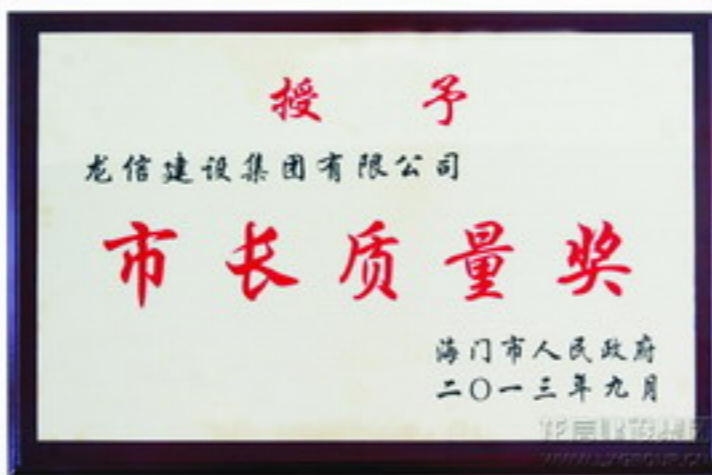 授予
龙信建设集团有限公司
市长质量奖
海门市人民政府
二〇一三年九月